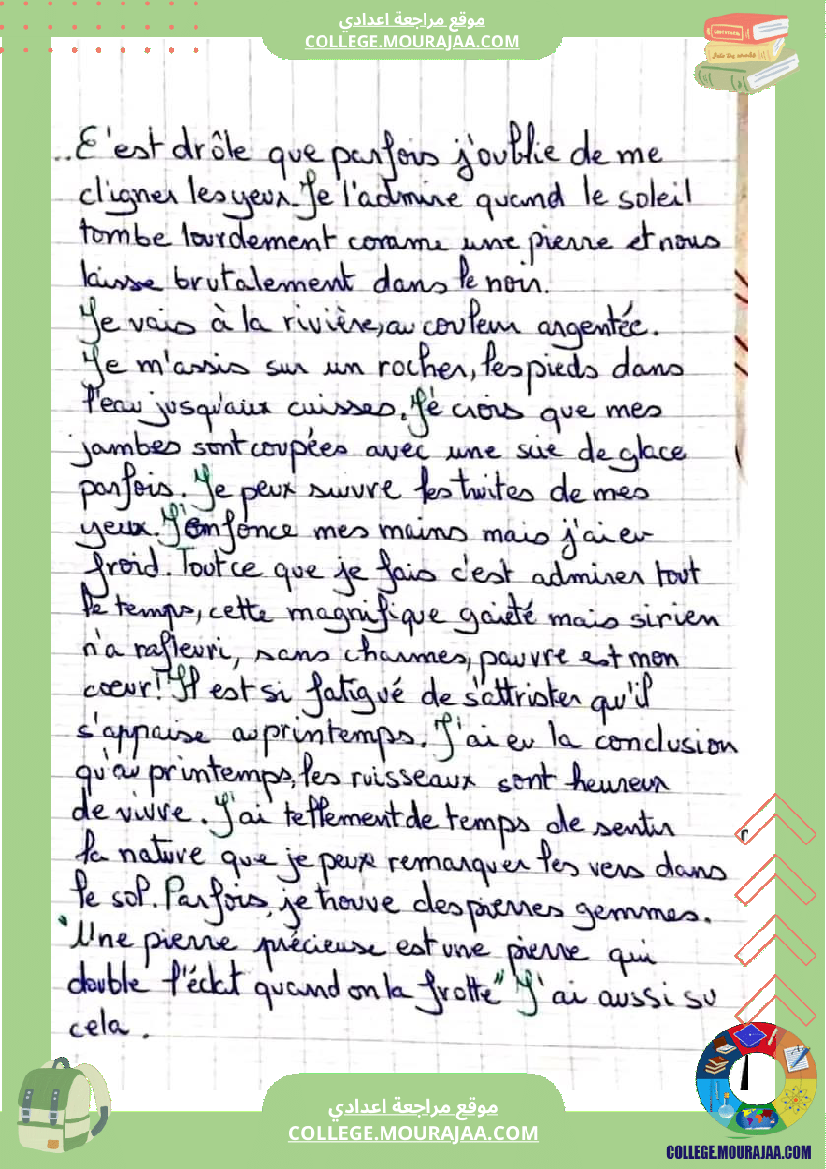 موقع مراجعة اعدادي
COLLEGE.MOURAJAA.COM
..C'est drôle que parfois j'oublie de me
cligner les yeux. Je l'admire quand le soleil
tombe lourdement comme une pierre et nous
laisse brutalement dans le noir.
Je vais à la rivière, au couleur argentée.
Je m'assis sur un rocher, les pieds dans
l'eau jusqu'aux cuisses. Je crois que mes
jambes sont coupées avec une scie de glace
parfois. Je peux suivre les truites de mes
yeux. J'enfonce mes mains mais j'ai eu
froid. Tout ce que je fais c'est admirer tout
le temps, cette magnifique gaieté mais si rien
n'a rafleuri, sans charmes, pauvre est mon
cœur! Il est si fatigué de s'attrister qu'il
s'appaise au printemps. J'ai eu la conclusion
qu'au printemps, les ruisseaux sont heureux
de vivre. J'ai tellement de temps de sentir
la nature que je peux remarquer les vers dans
le sol. Parfois, je trouve des pierres gemmes.
"Une pierre précieuse est une pierre qui
double l'éclat quand on la frotte" J'ai aussi su
cela.
موقع مراجعة اعدادي
COLLEGE.MOURAJAA.COM
COLLEGE.MOURAJAA.COM